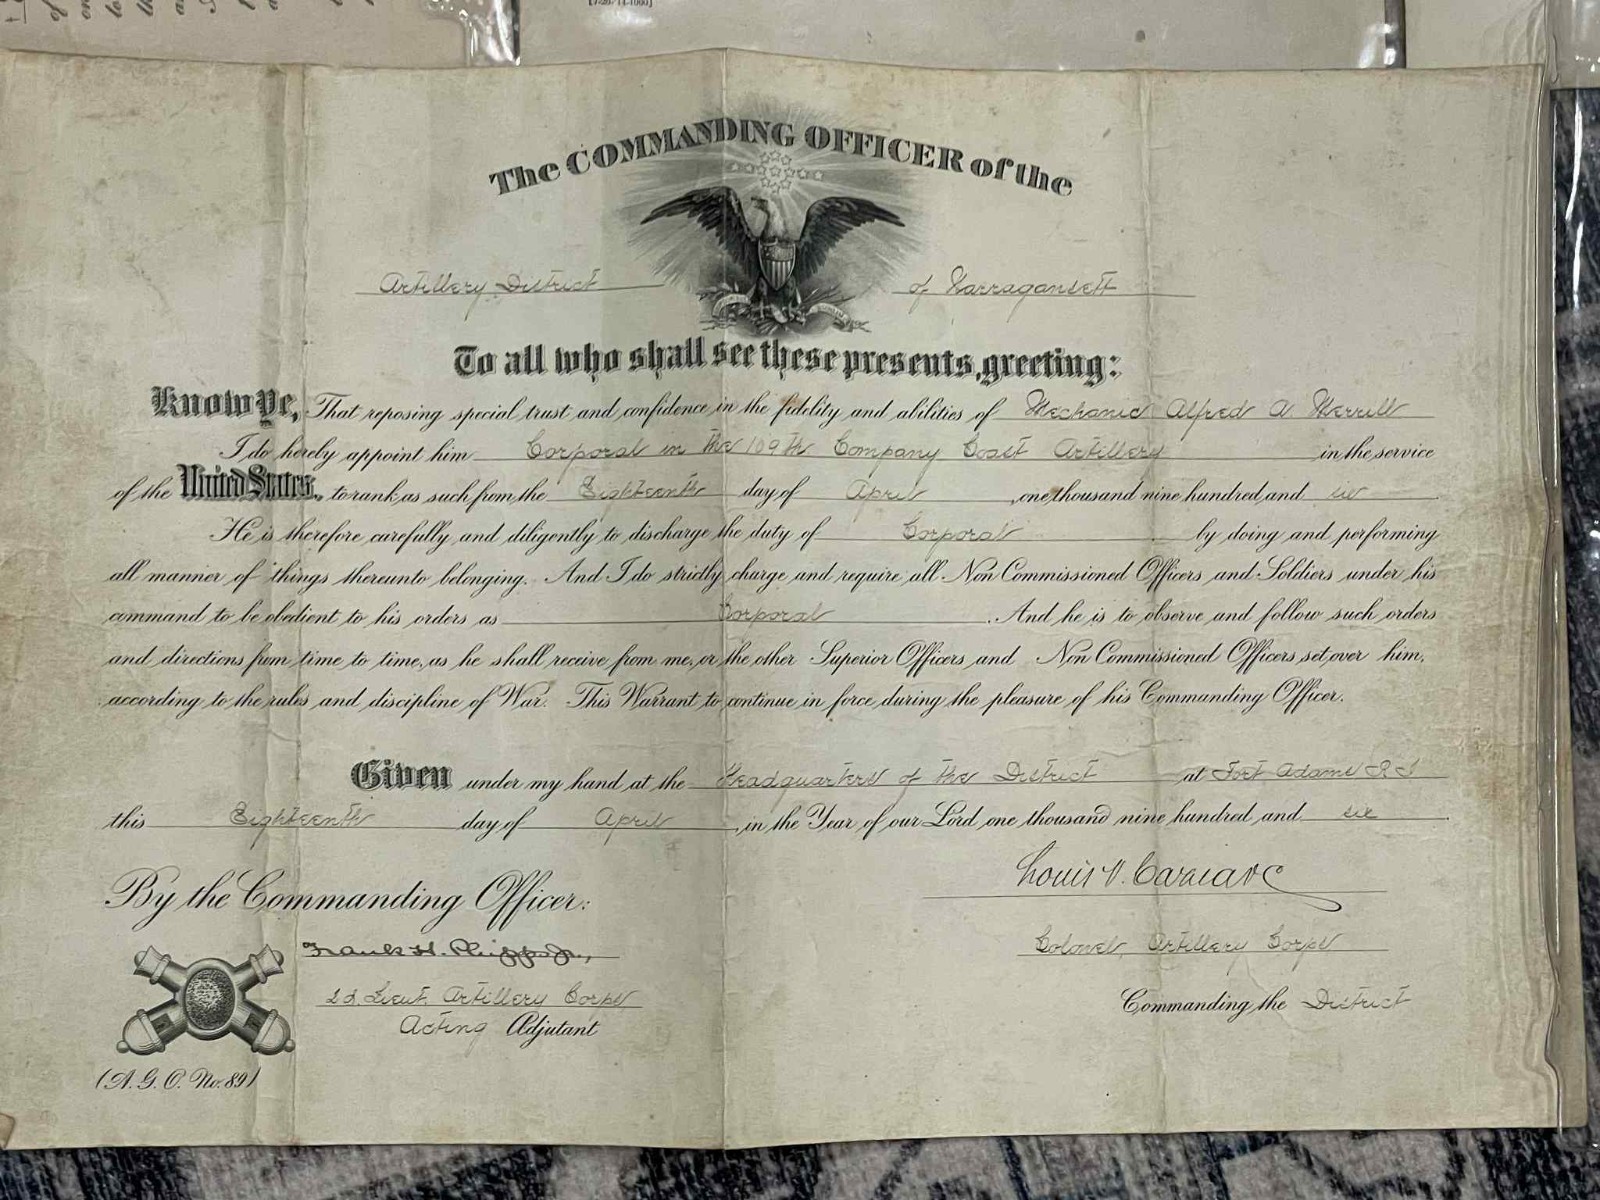 [7-26-'14-1000]
The COMMANDING OFFICER of the
Artillery District of Narragansett
To all who shall see these presents, greeting:
Know Ye, That reposing special trust and confidence in the fidelity and abilities of Mechanic Alfred A Merrill
I do hereby appoint him Corporal in the 109th Company Coast Artillery in the service
of the United States, to rank as such from the Eighteenth day of April, one thousand nine hundred and six
He is therefore carefully and diligently to discharge the duty of Corporal by doing and performing
all manner of things thereunto belonging. And I do strictly charge and require all Non Commissioned Officers and Soldiers under his
command to be obedient to his orders as Corporal. And he is to observe and follow such orders
and directions from time to time, as he shall receive from me, or the other Superior Officers and Non Commissioned Officers set over him,
according to the rules and discipline of War. This Warrant to continue in force during the pleasure of his Commanding Officer.
Given under my hand at the Headquarters of the District at Fort Adams R I
this Eighteenth day of April, in the Year of our Lord one thousand nine hundred and six
Louis V. Caziarc
By the Commanding Officer:
Frank H. Phipps Jr.,
Colonel, Artillery Corps
2d. Lieut. Artillery Corps
Commanding the District
Acting Adjutant
(A. G. O. No. 89)